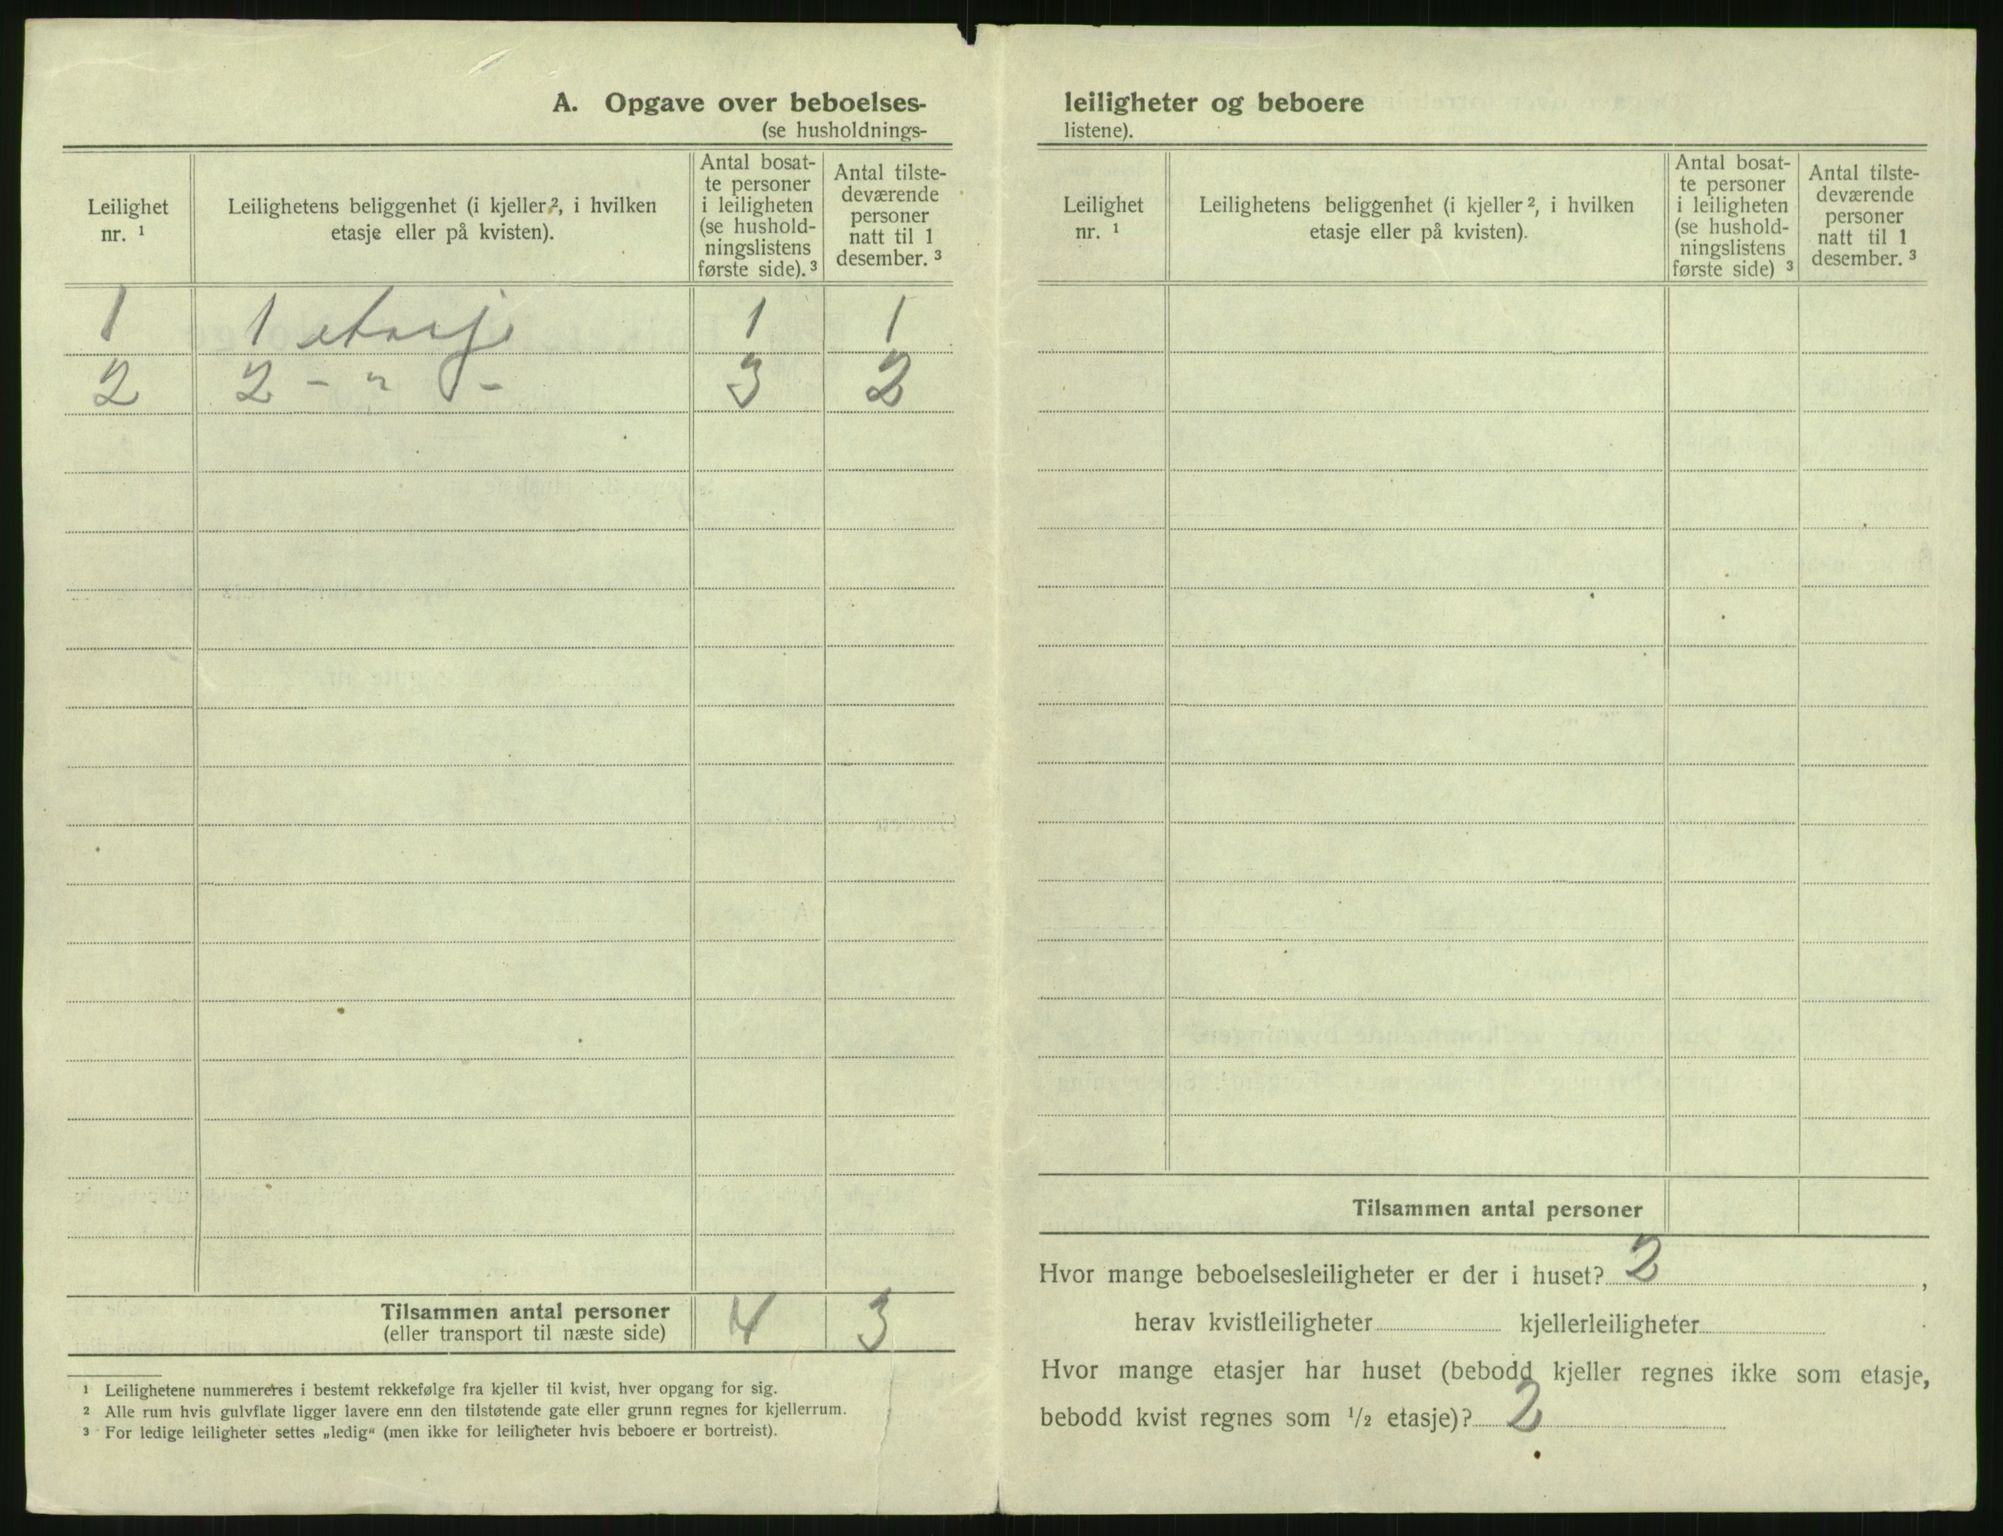 A. Opgave over beboelses-
(se husholdnings-
Leilighet nr. ¹
Leilighetens beliggenhet (i kjeller², i hvilken etasje eller på kvisten).
Antal bosat-
te personer
i leiligheten
(se hushold-
ningslistens
første side).³
Antal tilste-
deværende
personer
natt til 1
desember.³
1 1 etasje 1 1
2 2 - " - 3 2
Tilsammen antal personer 4 3
(eller transport til næste side)
¹ Leilighetene nummereres i bestemt rekkefølge fra kjeller til kvist, hver opgang for sig.
² Alle rum hvis gulvflate ligger lavere enn den tilstøtende gate eller grunn regnes for kjellerrum.
³ For ledige leiligheter settes „ledig“ (men ikke for leiligheter hvis beboere er bortreist).
leiligheter og beboere
listene).
Leilighet nr. ¹
Leilighetens beliggenhet (i kjeller², i hvilken etasje eller på kvisten).
Antal bosat-
te personer
i leiligheten
(se hushold-
ningslistens
første side) ³
Antal tilste-
deværende
personer
natt til 1
desember.³
Tilsammen antal personer
Hvor mange beboelsesleiligheter er der i huset? 2,
herav kvistleiligheter kjellerleiligheter
Hvor mange etasjer har huset (bebodd kjeller regnes ikke som etasje,
bebodd kvist regnes som ½ etasje)? 2